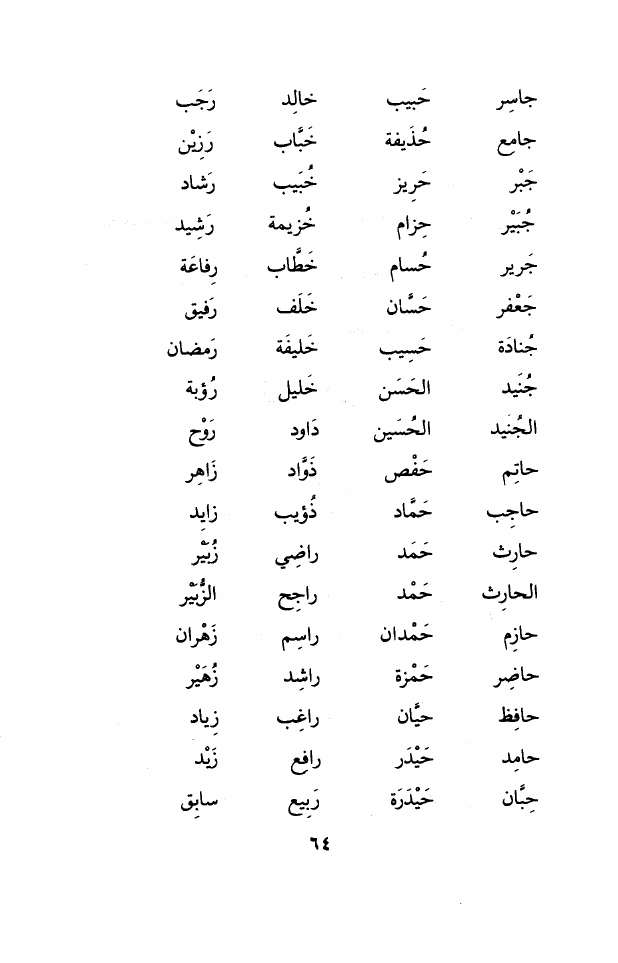 جاسِر حَبيب خالِد رَجَب
جامِع حُذَيفة خَبَّاب رَزِيْن
جَبْر حَرِيز خُبَيب رَشاد
جُبَيْر حِزام خُزيمة رَشِيد
جَرير حُسام خَطَّاب رِفاعَة
جَعْفر حَسَّان خَلَف رَفيق
جُنادَة حَسِيب خَليفَة رَمضان
جُنَيد الحَسَن خَليل رُؤبة
الجُنَيد الحُسَين دَاود رَوْح
حاتِم حَفْص ذَوَّاد زَاهِر
حاجِب حَمَّاد ذُؤيب زايِد
حارِث حَمَد راضِي زُبَيْر
الحارِث حَمْد راجِح الزُّبَيْر
حازِم حَمْدان راسِم زَهْران
حاضِر حَمْزة راشِد زُهَيْر
حافِظ حيَّان راغِب زِياد
حامِد حَيْدَر رافِع زَيْد
حِبَّان حَيْدَرَة رَبِيع سابِق
٦٤